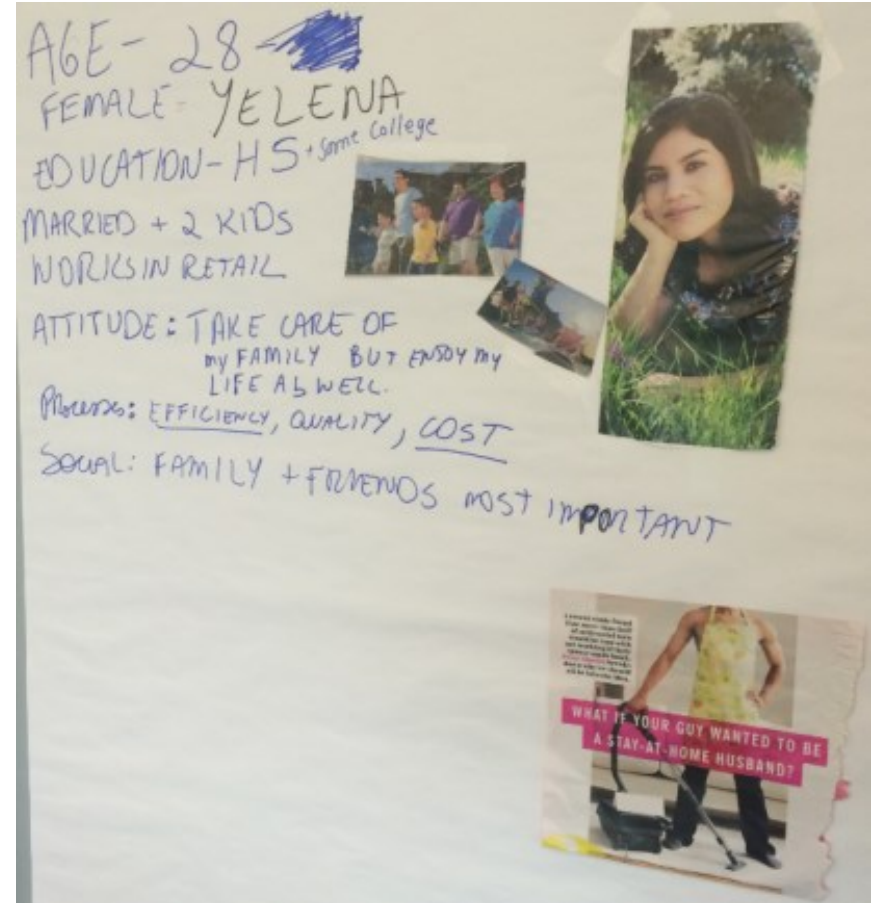 AGE - 28
FEMALE - YELENA
EDUCATION - HS + Some College
MARRIED + 2 KIDS
WORKS IN RETAIL
ATTITUDE: TAKE CARE OF
my FAMILY BUT ENJOY MY
LIFE AS WELL.
Process: EFFICIENCY, QUALITY, COST
SOCIAL: FAMILY + FRIENDS MOST IMPORTANT
WHAT IF YOUR GUY WANTED TO BE
A STAY-AT-HOME HUSBAND?